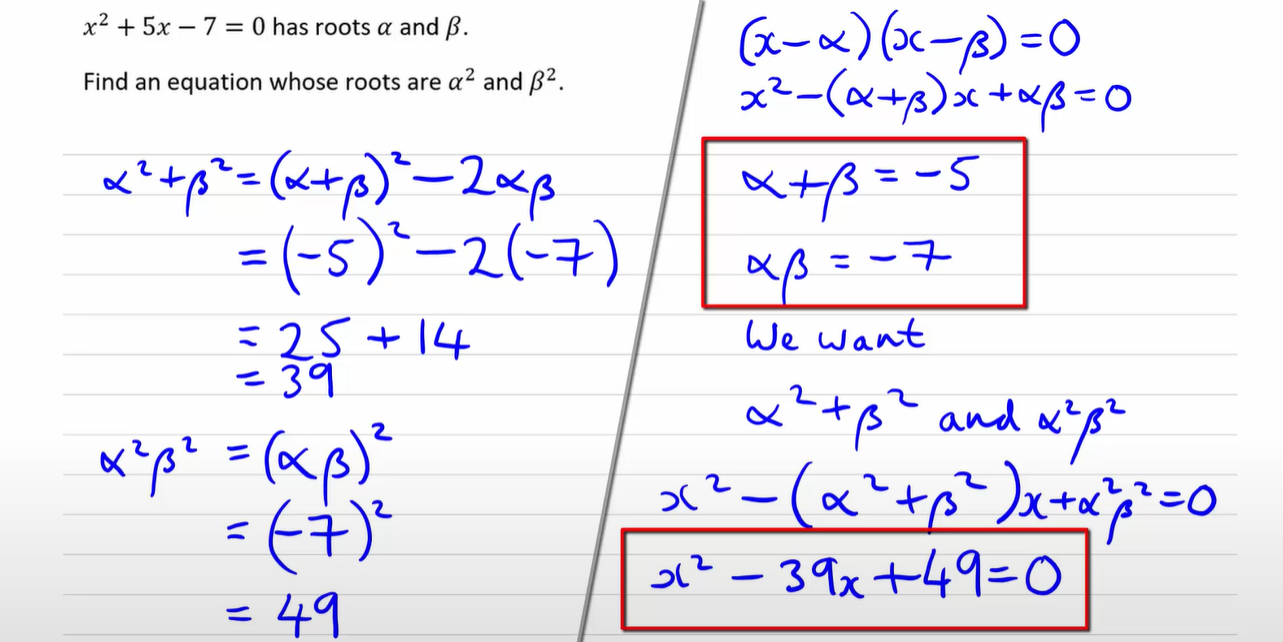 x² + 5x − 7 = 0 has roots α and β.
Find an equation whose roots are α² and β².
α²+β²=(α+β)²−2αβ
=(−5)²−2(−7)
=25+14
=39
α²β² =(αβ)²
=(−7)²
=49
(x−α)(x−β)=0
x²−(α+β)x+αβ=0
α+β=−5
αβ=−7
We want
α²+β² and α²β²
x²−(α²+β²)x+α²β²=0
x²−39x+49=0